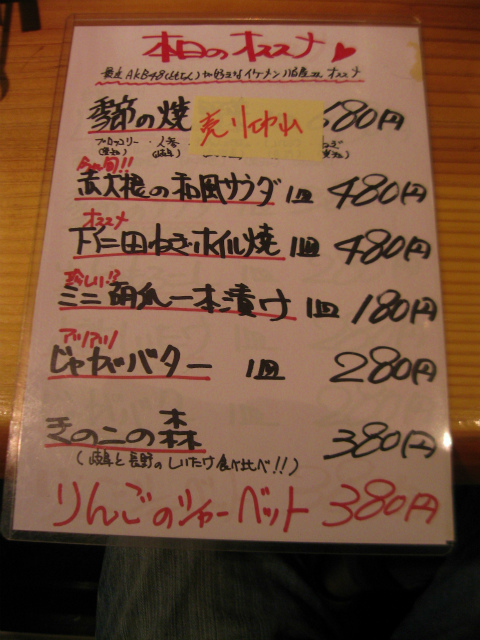 本日のオススメ♥
最近AKB48(ももちん)が好きなイケメン店長 オススメ
季節の焼 売り切れ 80円
ブロッコリー・人参
今が旬!!
赤大根の和風サラダ 1皿 480円
オススメ
下仁田ねぎホイル焼 1皿 480円
珍しい!?
ミニ胡瓜一本漬け 1皿 180円
アツアツ
じゃがバター 1皿 280円
きのこの森 380円
(岐阜と長野のしいたけ食べ比べ!!)
りんごのシャーベット 380円